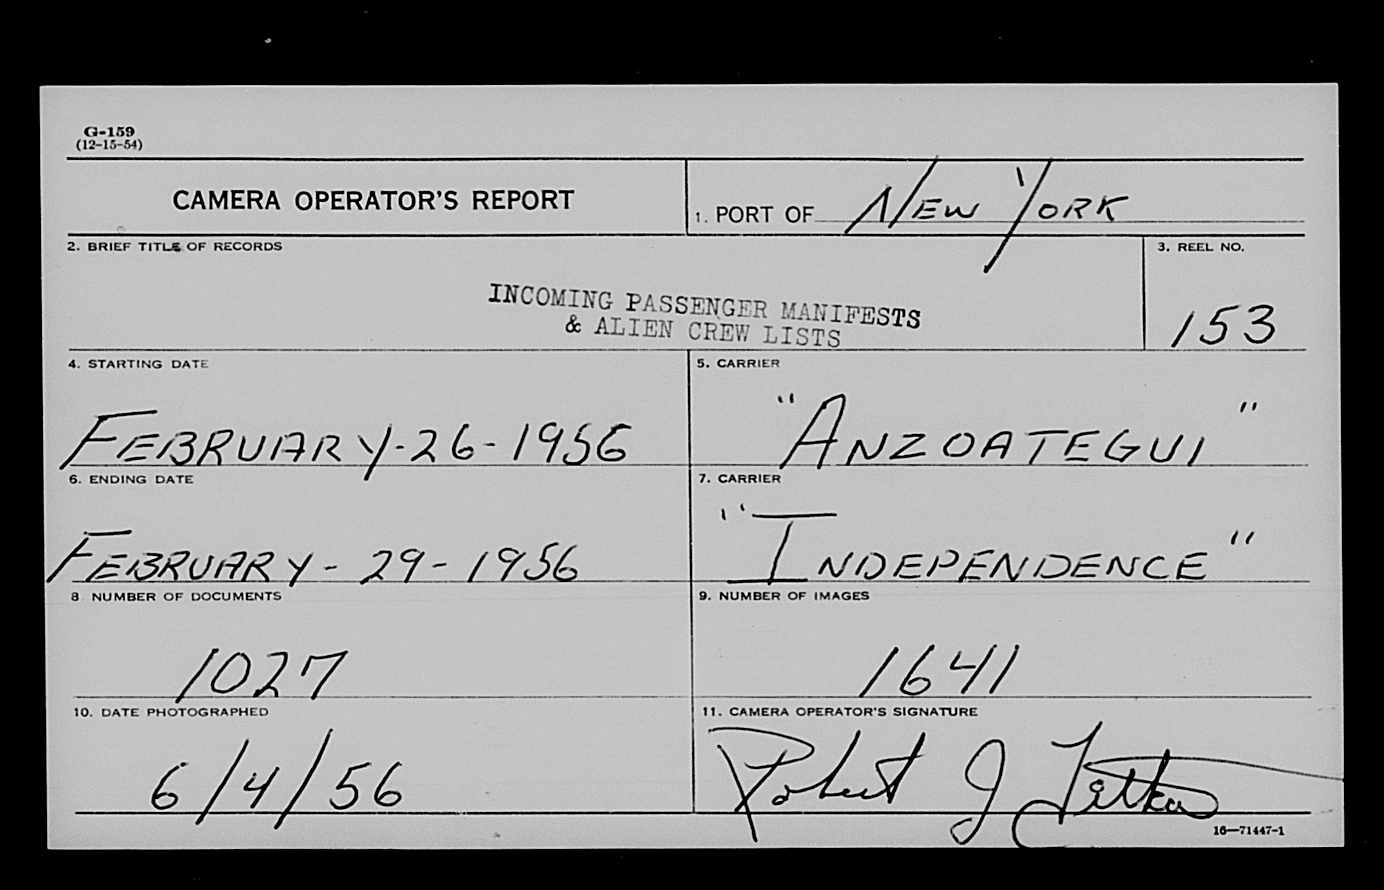 G-159
(12-15-54)
CAMERA OPERATOR'S REPORT
1. PORT OF NEW YORK
2. BRIEF TITLE OF RECORDS
3. REEL NO.
INCOMING PASSENGER MANIFESTS
& ALIEN CREW LISTS
153
4. STARTING DATE
5. CARRIER
FEBRUARY-26-1956
"ANZOATEGUI"
6. ENDING DATE
7. CARRIER
FEBRUARY-29-1956
"INDEPENDENCE"
8 NUMBER OF DOCUMENTS
9. NUMBER OF IMAGES
1027
1641
10. DATE PHOTOGRAPHED
11. CAMERA OPERATOR'S SIGNATURE
6/4/56
Robert J
16—71447-1